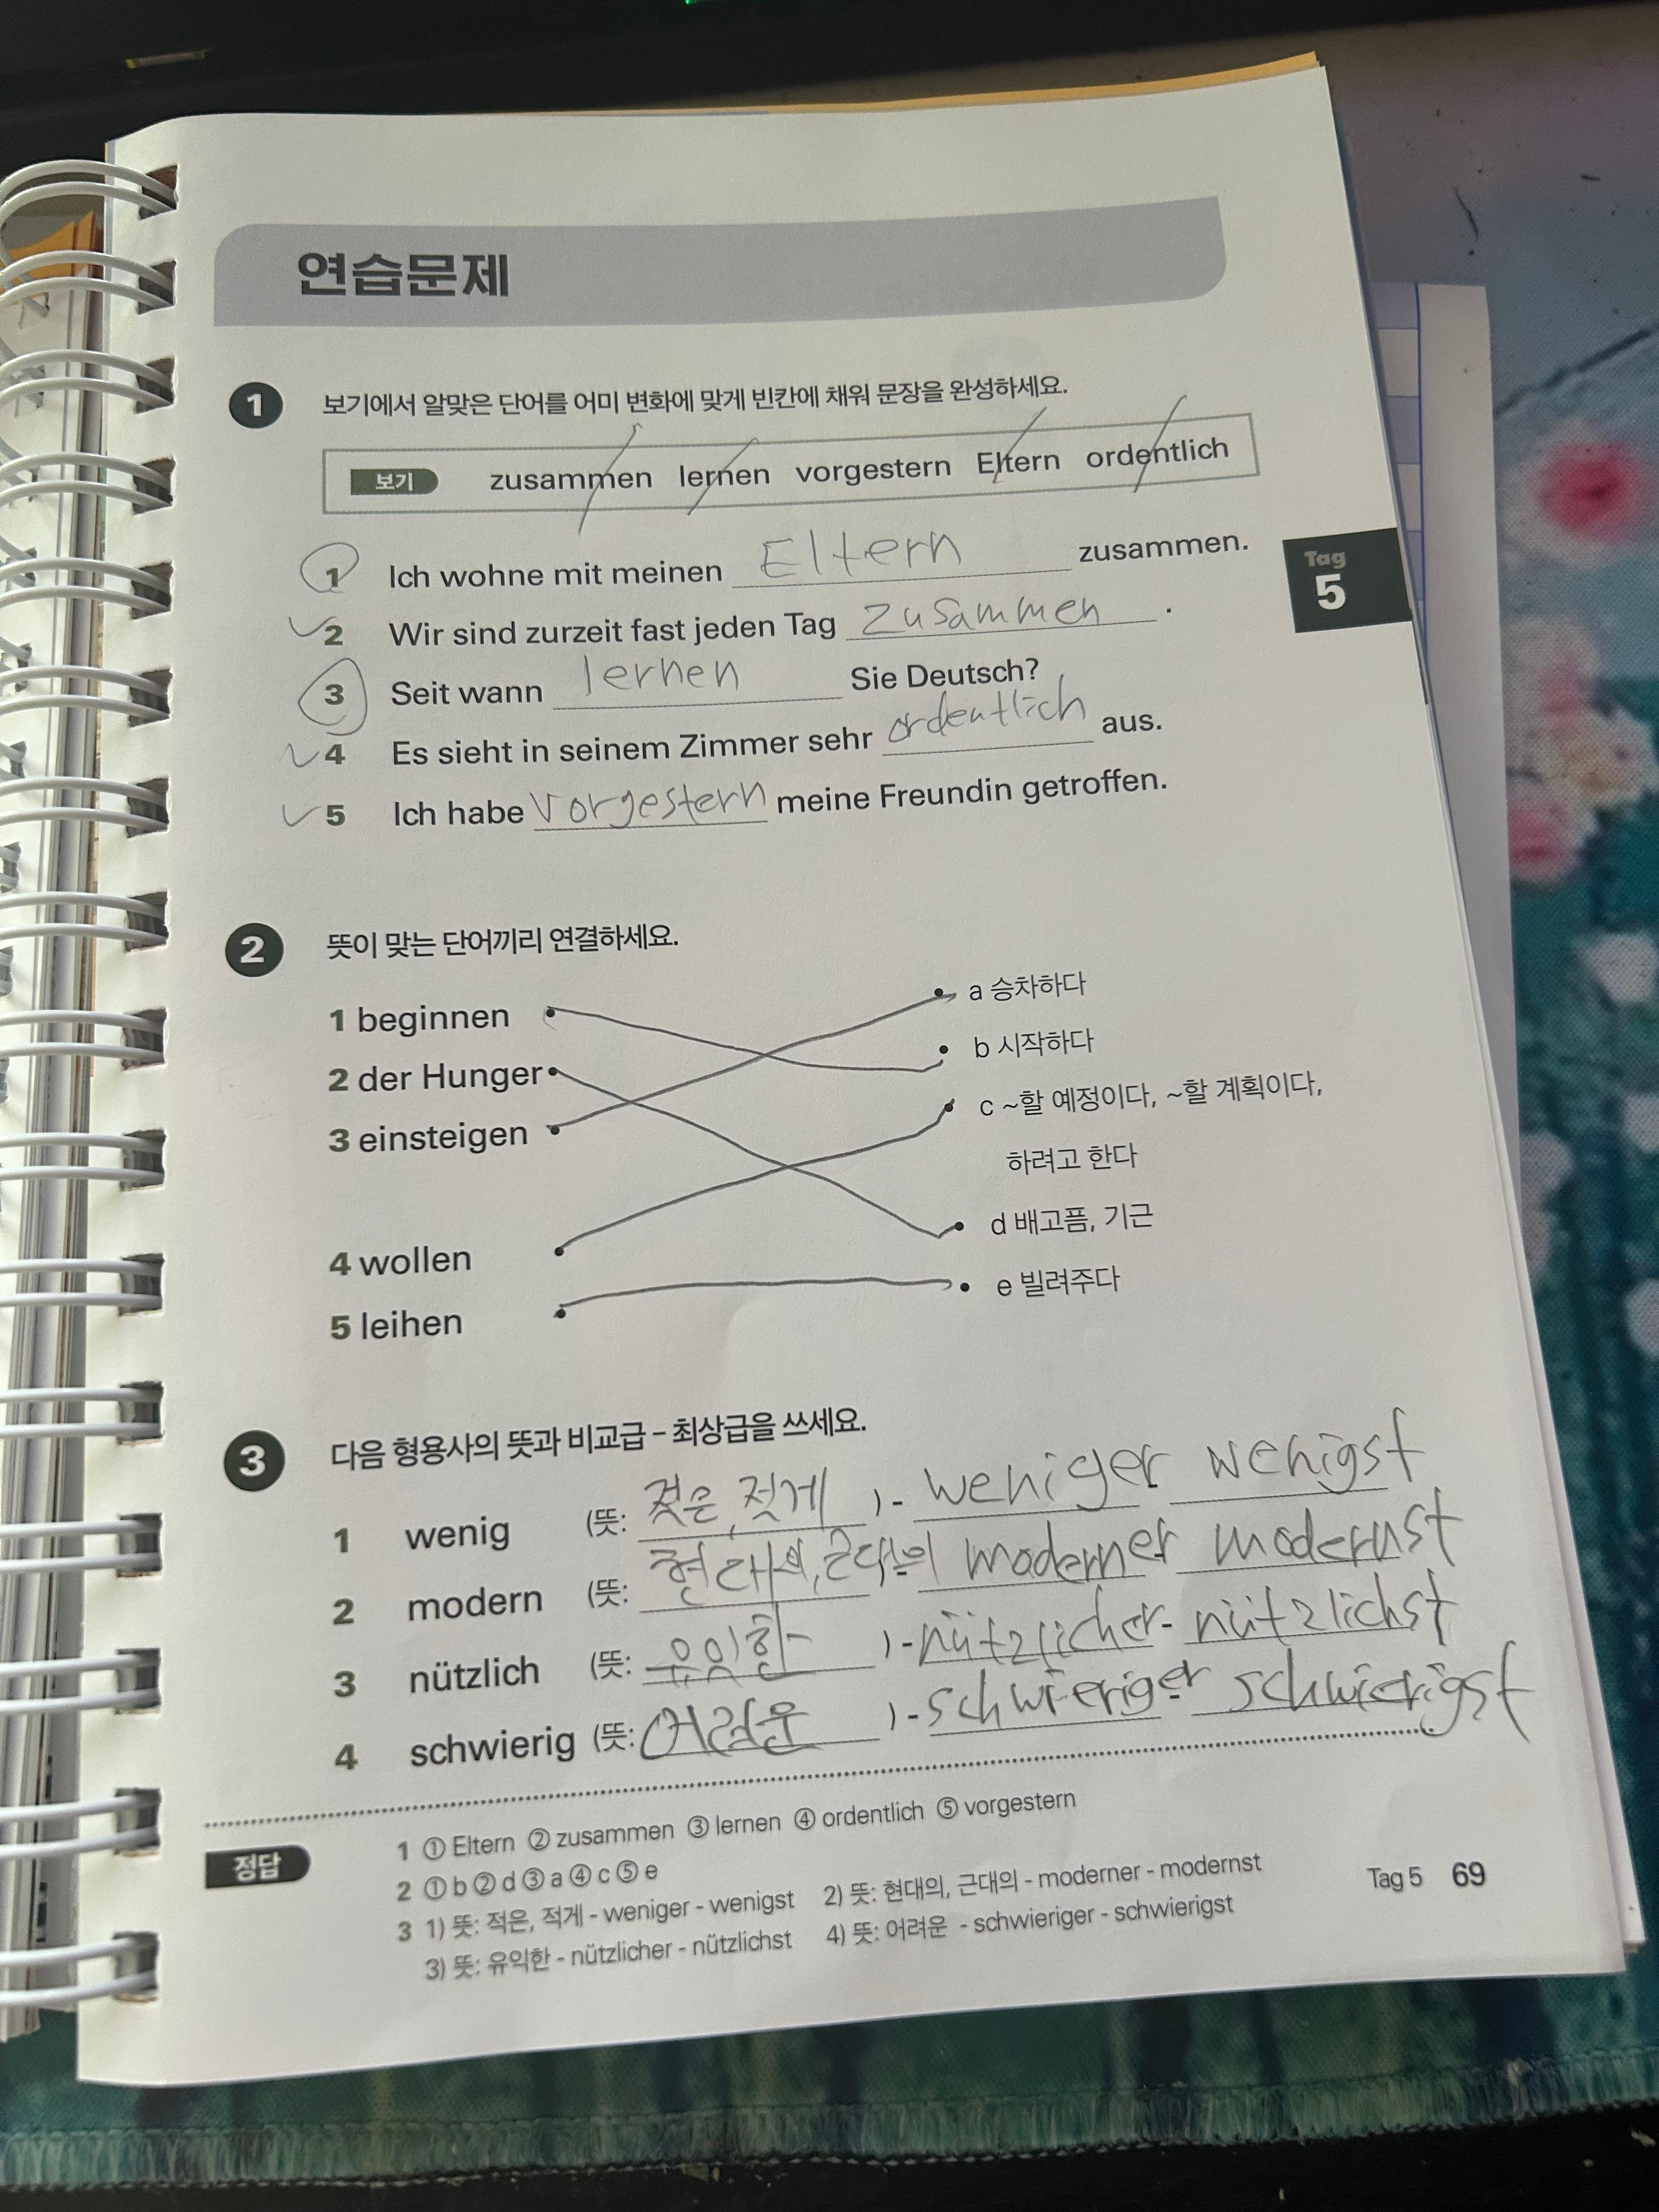 연습문제
1 보기에서 알맞은 단어를 어미 변화에 맞게 빈칸에 채워 문장을 완성하세요.
보기 zusammen lernen vorgestern Eltern ordentlich
1 Ich wohne mit meinen Eltern zusammen.
Tag
5
2 Wir sind zurzeit fast jeden Tag zusammen.
3 Seit wann lernen Sie Deutsch?
4 Es sieht in seinem Zimmer sehr ordentlich aus.
5 Ich habe vorgestern meine Freundin getroffen.
2 뜻이 맞는 단어끼리 연결하세요.
1 beginnen a 승차하다
2 der Hunger b 시작하다
3 einsteigen c ~할 예정이다, ~할 계획이다,
하려고 한다
4 wollen d 배고픔, 기근
5 leihen e 빌려주다
3 다음 형용사의 뜻과 비교급 – 최상급을 쓰세요.
1 wenig (뜻: 젖은, 젓게 ) - weniger - wenigst
2 modern (뜻: 현대의, 근대의 moderner modernst
3 nützlich (뜻: 유익한 ) - nützlicher - nützlichst
4 schwierig (뜻: 어려운 ) - schwieriger schwierigst
정답
1 ① Eltern ② zusammen ③ lernen ④ ordentlich ⑤ vorgestern
2 ① b ② d ③ a ④ c ⑤ e
3 1) 뜻: 적은, 적게 - weniger - wenigst 2) 뜻: 현대의, 근대의 - moderner - modernst
3) 뜻: 유익한 - nützlicher - nützlichst 4) 뜻: 어려운 - schwieriger - schwierigst
Tag 5 69